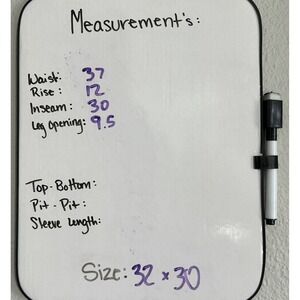 Measurement's:
Waist: 37
Rise: 12
Inseam: 30
Leg opening: 9.5
Top-Bottom:
Pit-Pit:
Sleeve Length:
Size: 32 x 30